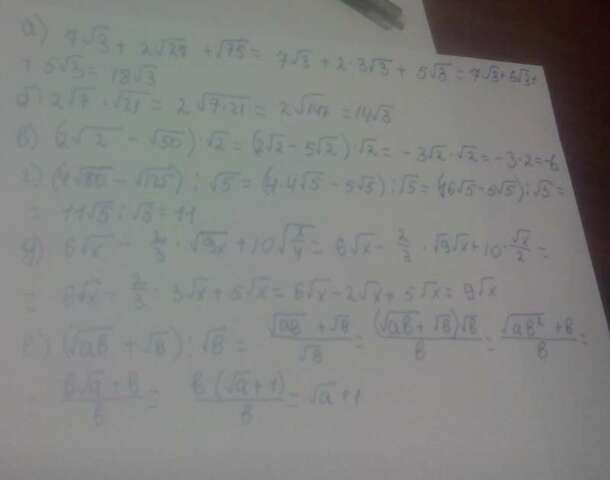 а) 7√3 + 2√27 + √75 = 7√3 + 2·3√3 + 5√3 = 7√3 + 6√3 +
+ 5√3 = 18√3
б) 2√7 · √21 = 2√7·21 = 2√147 = 14√3
в) (2√2 - √50) · √2 = (2√2 - 5√2) · √2 = -3√2·√2 = -3·2 = -6
г) (4√80 - √125) : √5 = (4·4√5 - 5√5) : √5 = (16√5 - 5√5) : √5 =
= 11√5 : √5 = 11
д) 6√x - 2/3 · √9x + 10√x/4 = 6√x - 2/3 · √9√x + 10 · √x/2 =
= 6√x - 2/3 · 3√x + 5√x = 6√x - 2√x + 5√x = 9√x
е) (√ab + √b) : √b = √ab + √b/√b = (√ab + √b)√b/b = √ab² + b/b =
= b√a + b/b = b(√a + 1)/b = √a + 1